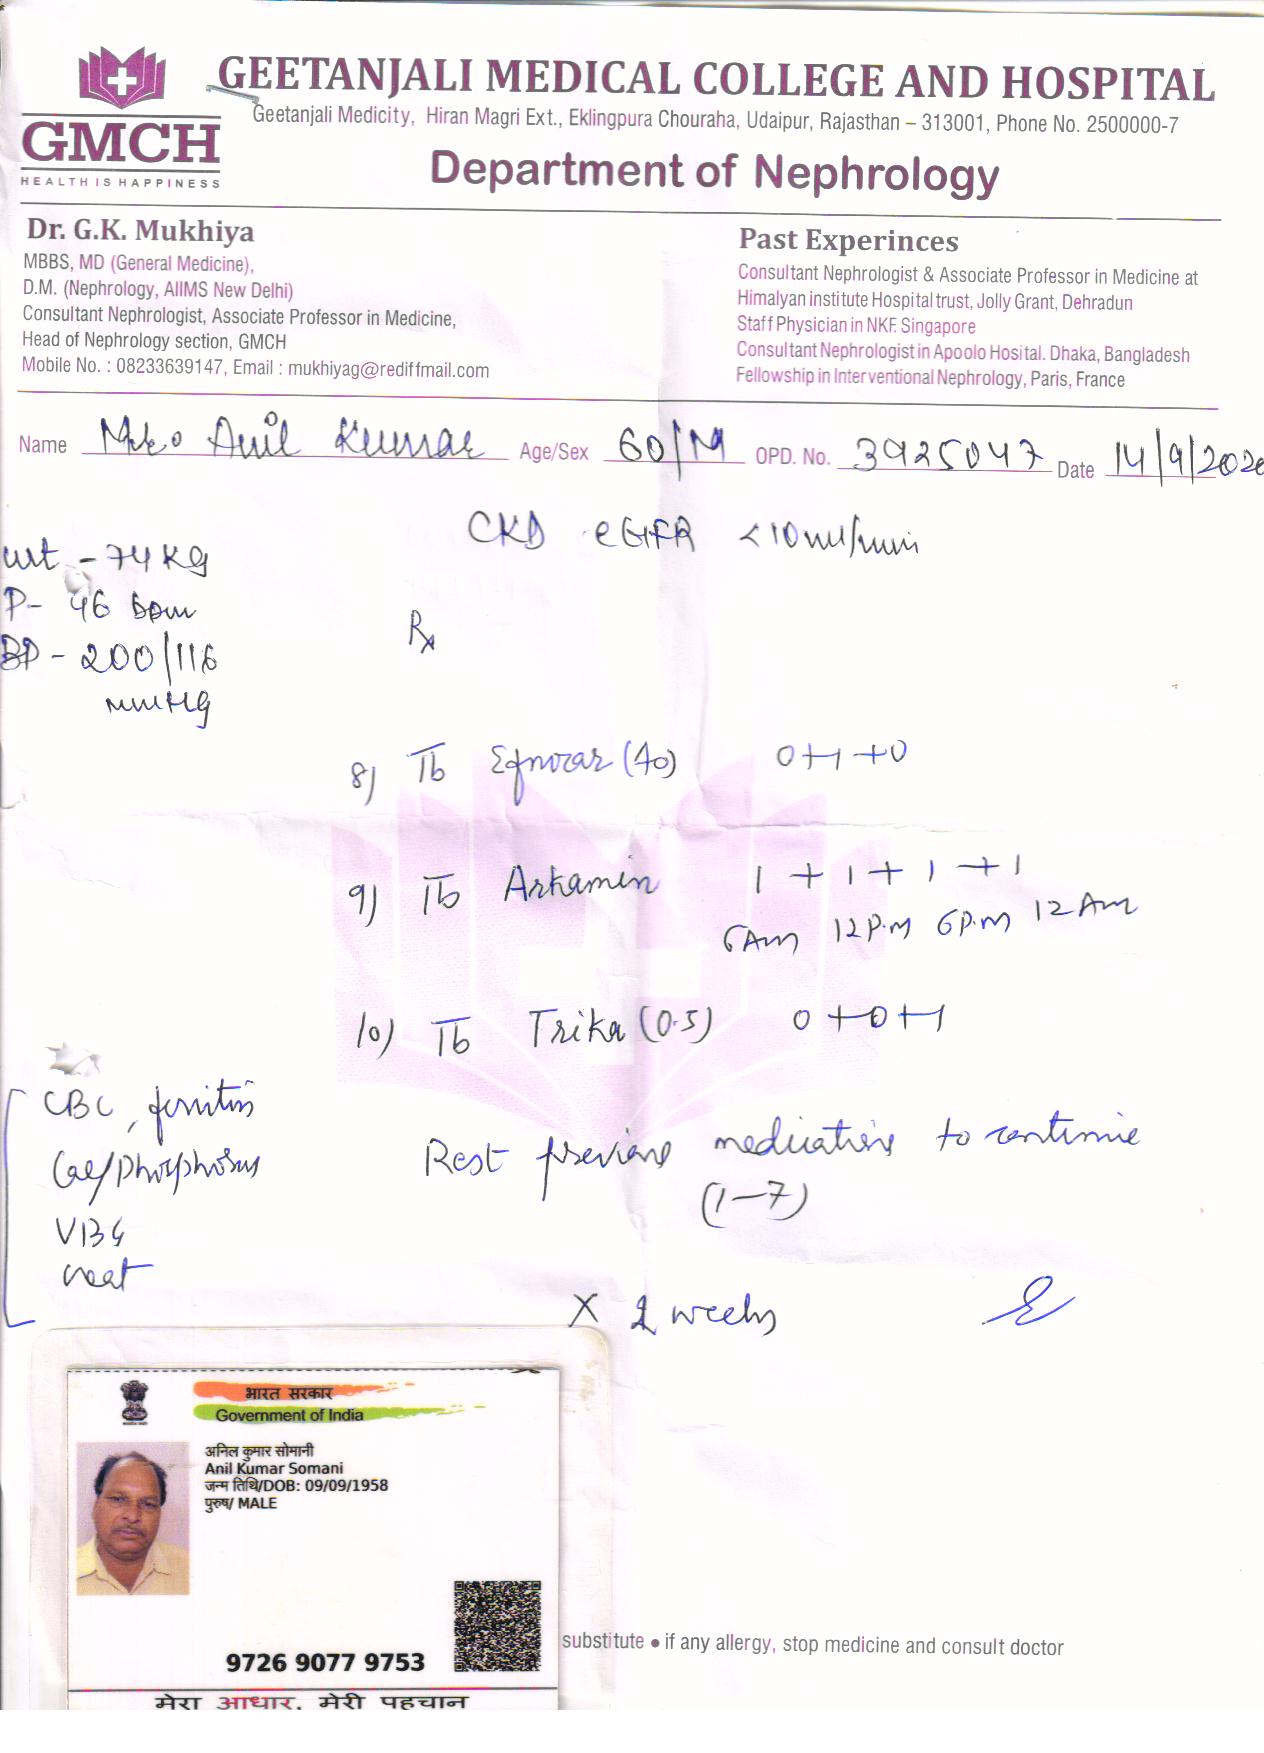 GEETANJALI MEDICAL COLLEGE AND HOSPITAL
Geetanjali Medicity, Hiran Magri Ext., Eklingpura Chouraha, Udaipur, Rajasthan – 313001, Phone No. 2500000-7
GMCH
HEALTH IS HAPPINESS
Department of Nephrology
Dr. G.K. Mukhiya
MBBS, MD (General Medicine),
D.M. (Nephrology, AIIMS New Delhi)
Consultant Nephrologist, Associate Professor in Medicine,
Head of Nephrology section, GMCH
Mobile No. : 08233639147, Email : mukhiyag@rediffmail.com
Past Experinces
Consultant Nephrologist & Associate Professor in Medicine at
Himalyan institute Hospital trust, Jolly Grant, Dehradun
Staff Physician in NKF. Singapore
Consultant Nephrologist in Apoolo Hosital. Dhaka, Bangladesh
Fellowship in Interventional Nephrology, Paris, France
Name Anil Kumar Age/Sex 60/M OPD. No. 3925047 Date 14/9/2020
CKD eGFR <10 ml/min
wt - 74 Kg
P- 46 bpm
BP - 200/116
mmHg
Rx
8) Tb (40) 0+1+0
9) Tb Arkamin 1 + 1 + 1 + 1
6Am 12P.M 6P.M 12Am
10) Tb Trika (0.5) 0+0+1
CBC, ferritin
Cal/phosphorus
VBG
creat
Rest previous medications to continue
(1-7)
X 2 weeks
भारत सरकार
Government of India
अनिल कुमार सोमानी
Anil Kumar Somani
जन्म तिथि/DOB: 09/09/1958
पुरुष/ MALE
9726 9077 9753
मेरा आधार, मेरी पहचान
substitute • if any allergy, stop medicine and consult doctor